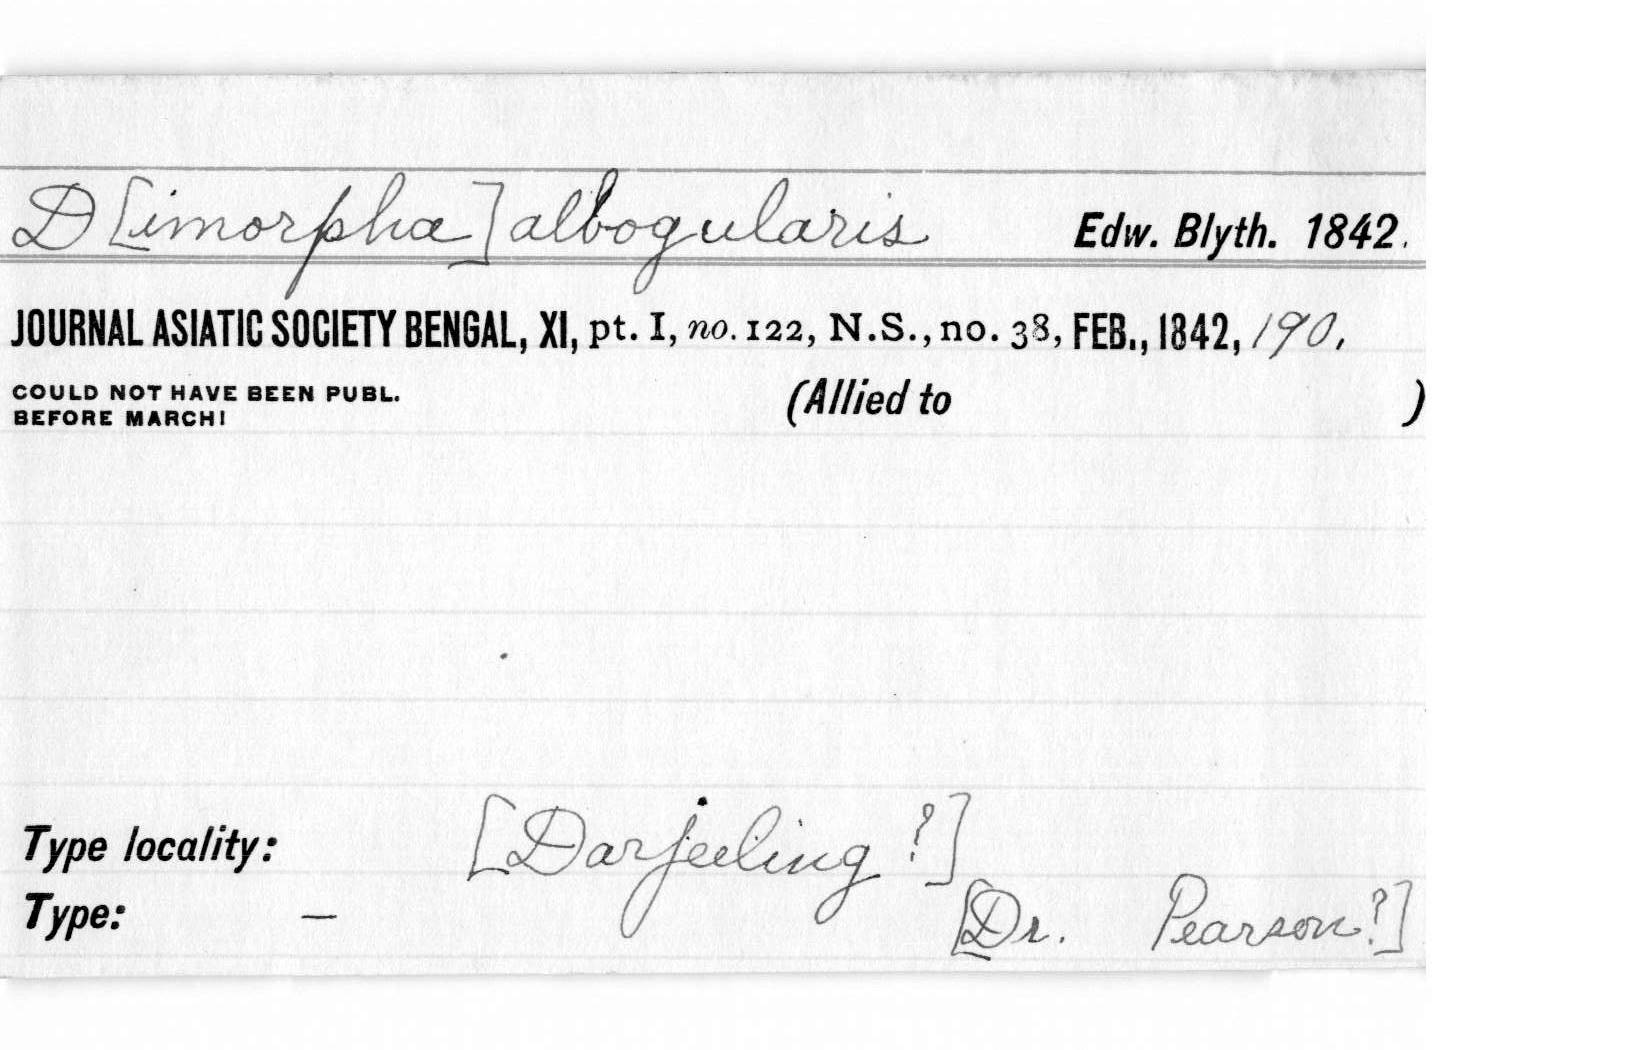 D[imorpha] albogularis Edw. Blyth. 1842.
JOURNAL ASIATIC SOCIETY BENGAL, XI, pt. I, no. 122, N.S., no. 38, FEB., 1842, 190.
COULD NOT HAVE BEEN PUBL.
BEFORE MARCH!
(Allied to )
Type locality: [Darjeeling ?]
Type: — [Dr. Pearson?]